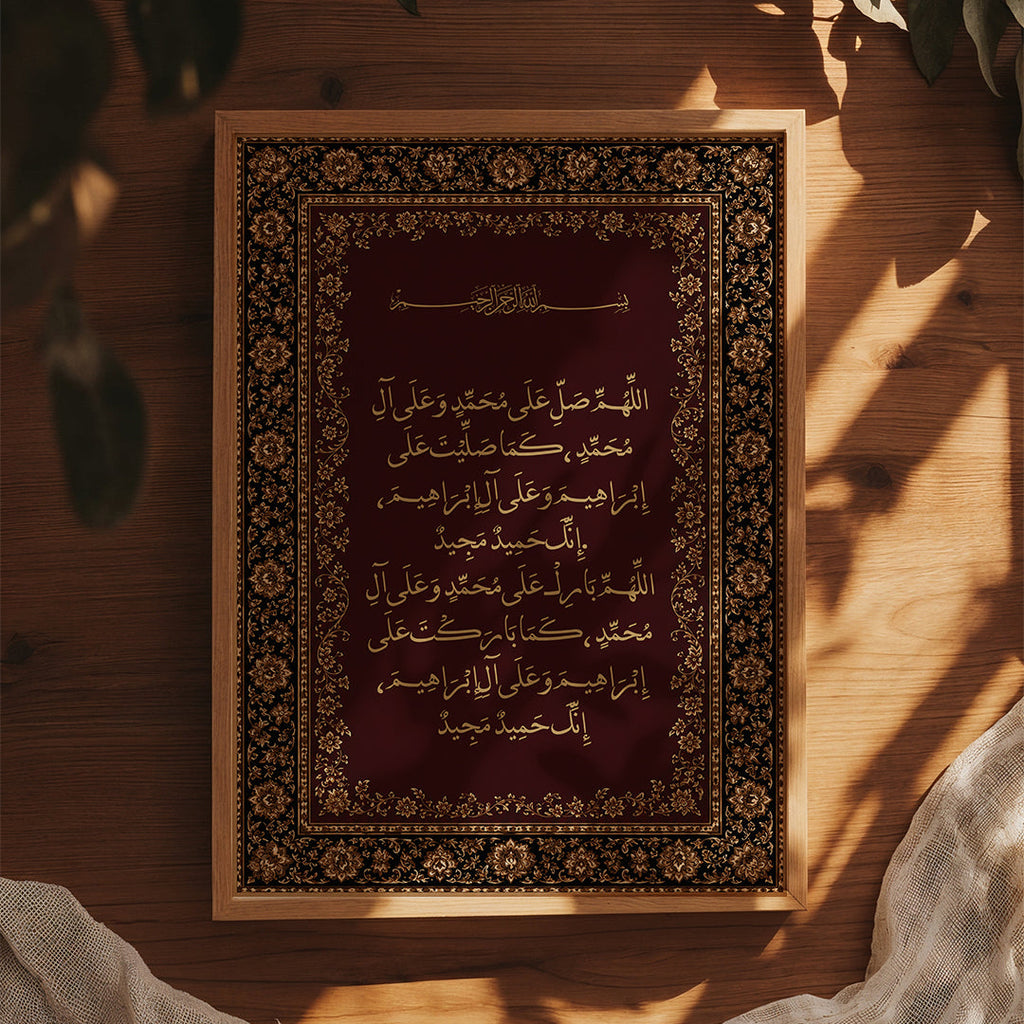 بِسْمِ اللَّهِ الرَّحْمَنِ الرَّحِيمِ
اللَّهُمَّ صَلِّ عَلَى مُحَمَّدٍ وَعَلَى آلِ
مُحَمَّدٍ ، كَمَا صَلَّيْتَ عَلَى
إِبْرَاهِيمَ وَعَلَى آلِ إِبْرَاهِيمَ ،
.إِنَّكَ حَمِيدٌ مَجِيدٌ
اللَّهُمَّ بَارِكْ عَلَى مُحَمَّدٍ وَعَلَى آلِ
مُحَمَّدٍ ، كَمَا بَارَكْتَ عَلَى
إِبْرَاهِيمَ وَعَلَى آلِ إِبْرَاهِيمَ ،
إِنَّكَ حَمِيدٌ مَجِيدٌ